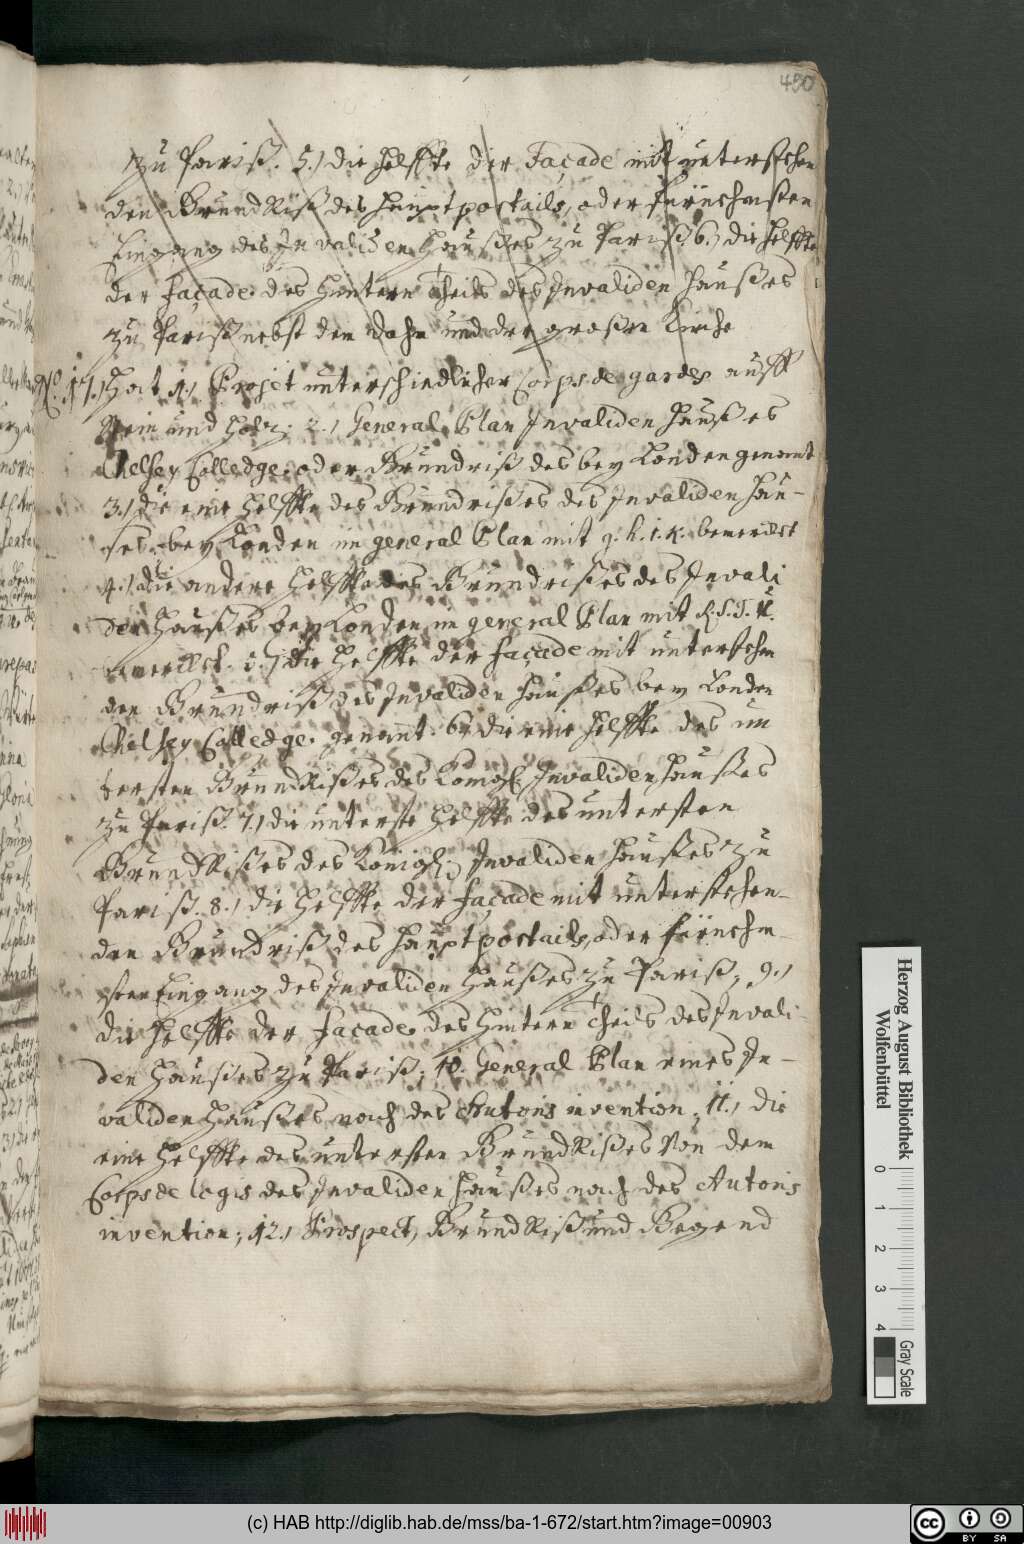 450
zu Pariß. 5.) die Helffte der Façade mit unterstehen
den GrundRiß des Hauptportails, oder fürnehmsten
Eingang des Invaliden Haußes zu Pariß 6.) die Helffte
der façade des Hintern theils des Invaliden Haußes
zu Pariß nebst den Dohm und der großen Kirche
No. 17.) Hat 1.) Projet unterschiedlicher Corps de gardes auff
Stein und Holtz; 2.) General Plan Invaliden Haußes
Chelsey Colledge. oder Grundriß des bey Londen genant
3.) die eine Helffte des Grundrißes des Invaliden Hau-
ses bey Londen im general Plan mit g. h. i. k. bemerckt
4.) die andere Helffte des Grundrißes des Invali
den Haußes bey Londen im general Plan mit R. S. T. U.
bemerckt. 5.) die Helffte der façade mit unterstehen
den Grundriß des Invaliden Haußes bey Londen
Chelsey Colledge. genant. 6.) die eine Helffte des un
tersten GrundRißes des Königl. Invaliden Haußes
zu Pariß. 7.) die unterste Helffte des untersten
GrundRißes des Königl. Invaliden Haußes zu
Pariß. 8.) die Helffte der façade mit unterstehen-
den Grundriß des Hauptportails, oder fürnehm-
sten Eingang des Invaliden Haußes zu Pariß; 9.)
die Helffte der façade des Hintern theils des Invali-
den Haußes zu Pariß; 10. General Plan eines In-
validen Haußes nach des Autoris invention. 11.) die
eine Helffte des untersten GrundRißes von dem
Corps de logis des Invaliden Haußes nach des Autoris
invention; 12.) Prospect, GrundRiß und Gegend
Herzog August Bibliothek
Wolfenbüttel
0 1 2 3 4
Gray Scale
HAB
(c) HAB http://diglib.hab.de/mss/ba-1-672/start.htm?image=00903
cc BY SA